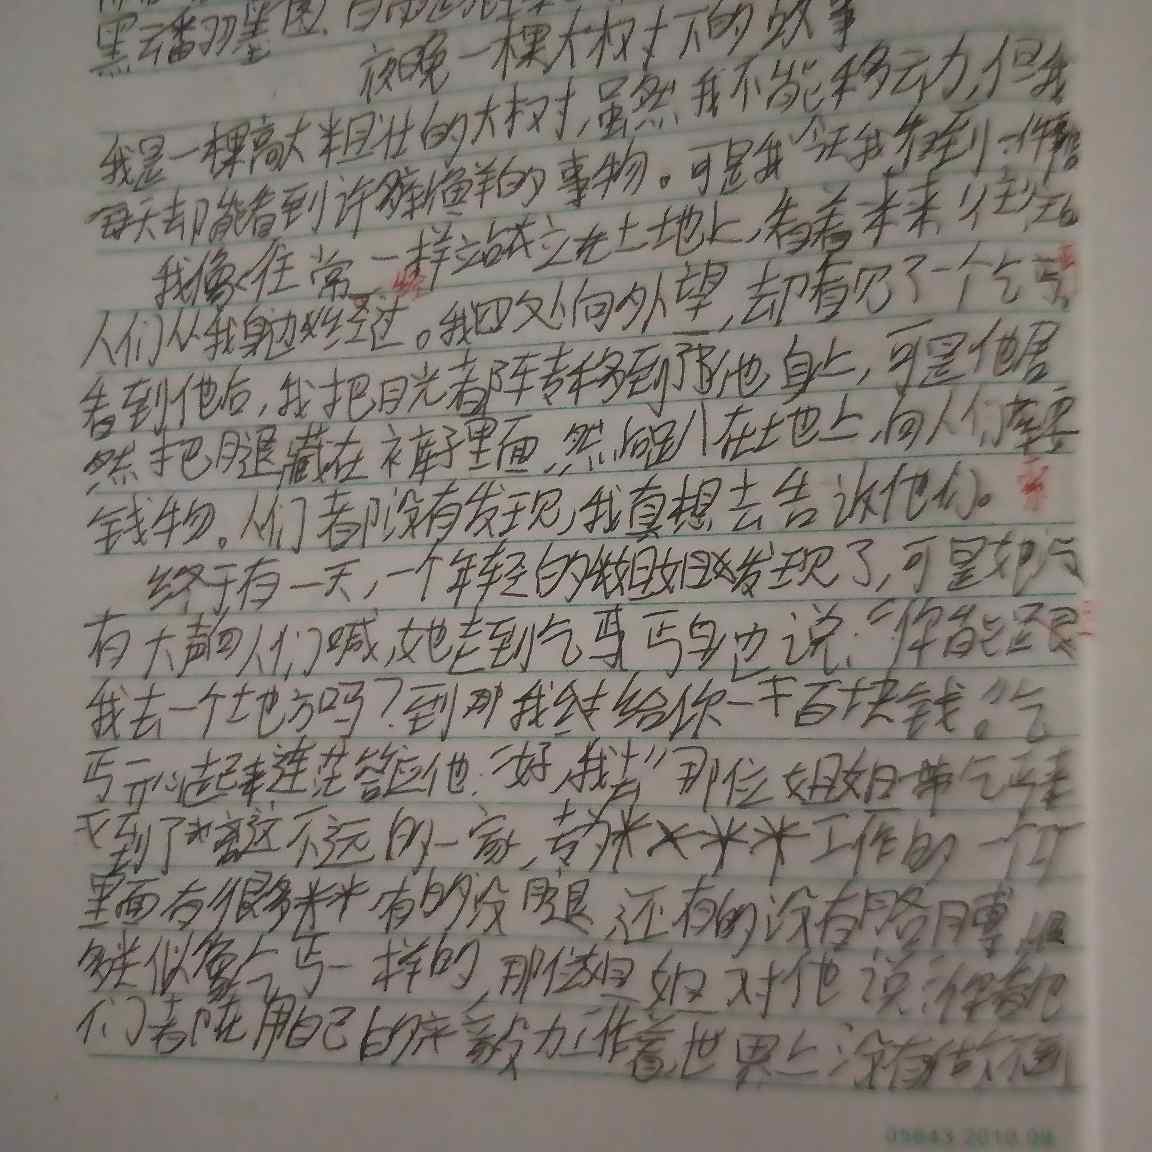 一棵大树下的故事
我是一棵高大粗壮的大树,虽然我不能移动,但我
每天却能看到许多一样的事物。可是我今天我看到一件
我像往常一样站立在土地上,看着来来往往的
人们从我身边经过。我四处向外望,却看见了一个乞丐。
看到他后,我把目光都转移到了他身上,可是他居
然把腿藏在裤子里面,然后趴在土地上,向人们要
钱物。人们都没有发现,我真想去告诉他们。
终于有一天,一个年轻的姐姐发现了,可是她没
有大声向人们喊,她走到乞丐身边说:“你能跟
我去一个地方吗?到那我给你一千百块钱。”乞
丐一听起来连忙答应他:“好,我去”那位姐姐带乞丐来
到了离这不远的一家,专为****工作的一个工
里面有很多** 有的没腿,还有的没有胳膊,
类似像乞丐一样的,那位姐姐对他说:“你看他
们都在用自己的毅力工作着,世界上没有做不到
05643 2010.08